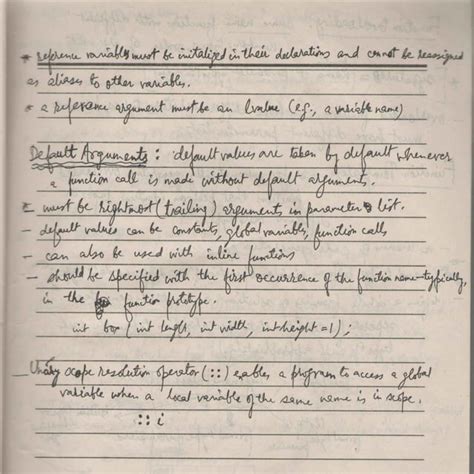 * reference variables must be initalized in their declarations and cannot be reassigned
as aliases to other variables.
* a reference argument must be an lvalue (e.g., a variable name)
Default Arguments : default values are taken by default whenever
a function call is made without default arguments.
- must be rightmost (trailing) arguments in parameter list.
- default values can be constants, global variables, function calls
- can also be used with inline functions
- should be specified with the first occurrence of the function name-typically,
in the function prototype.
int box (int length, int width, int height = 1) ;
Unary scope resolution operator (::) enables a program to access a global
variable when a local variable of the same name is in scope.
:: i